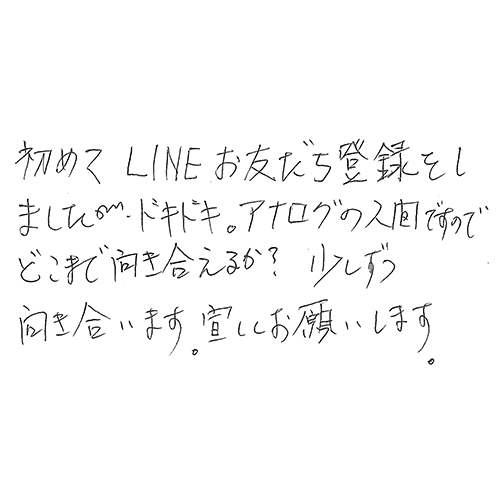 初めて LINE お友だち登録をし
ましたが、ドキドキ。アナログの人間ですので
どこまで向き合えるか？ 少しずつ
向き合います。宜しくお願いします。